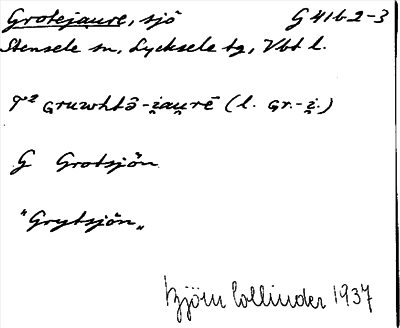 Grotejaure, sjö G 41 b 2-3
Stensele sn, Lycksele tg, Vbt l.
T² gruwhtō-i̯au̯rē (l. gr.-i̯.)
G Grotsjön
"Grytsjön„
Björn Collinder 1937